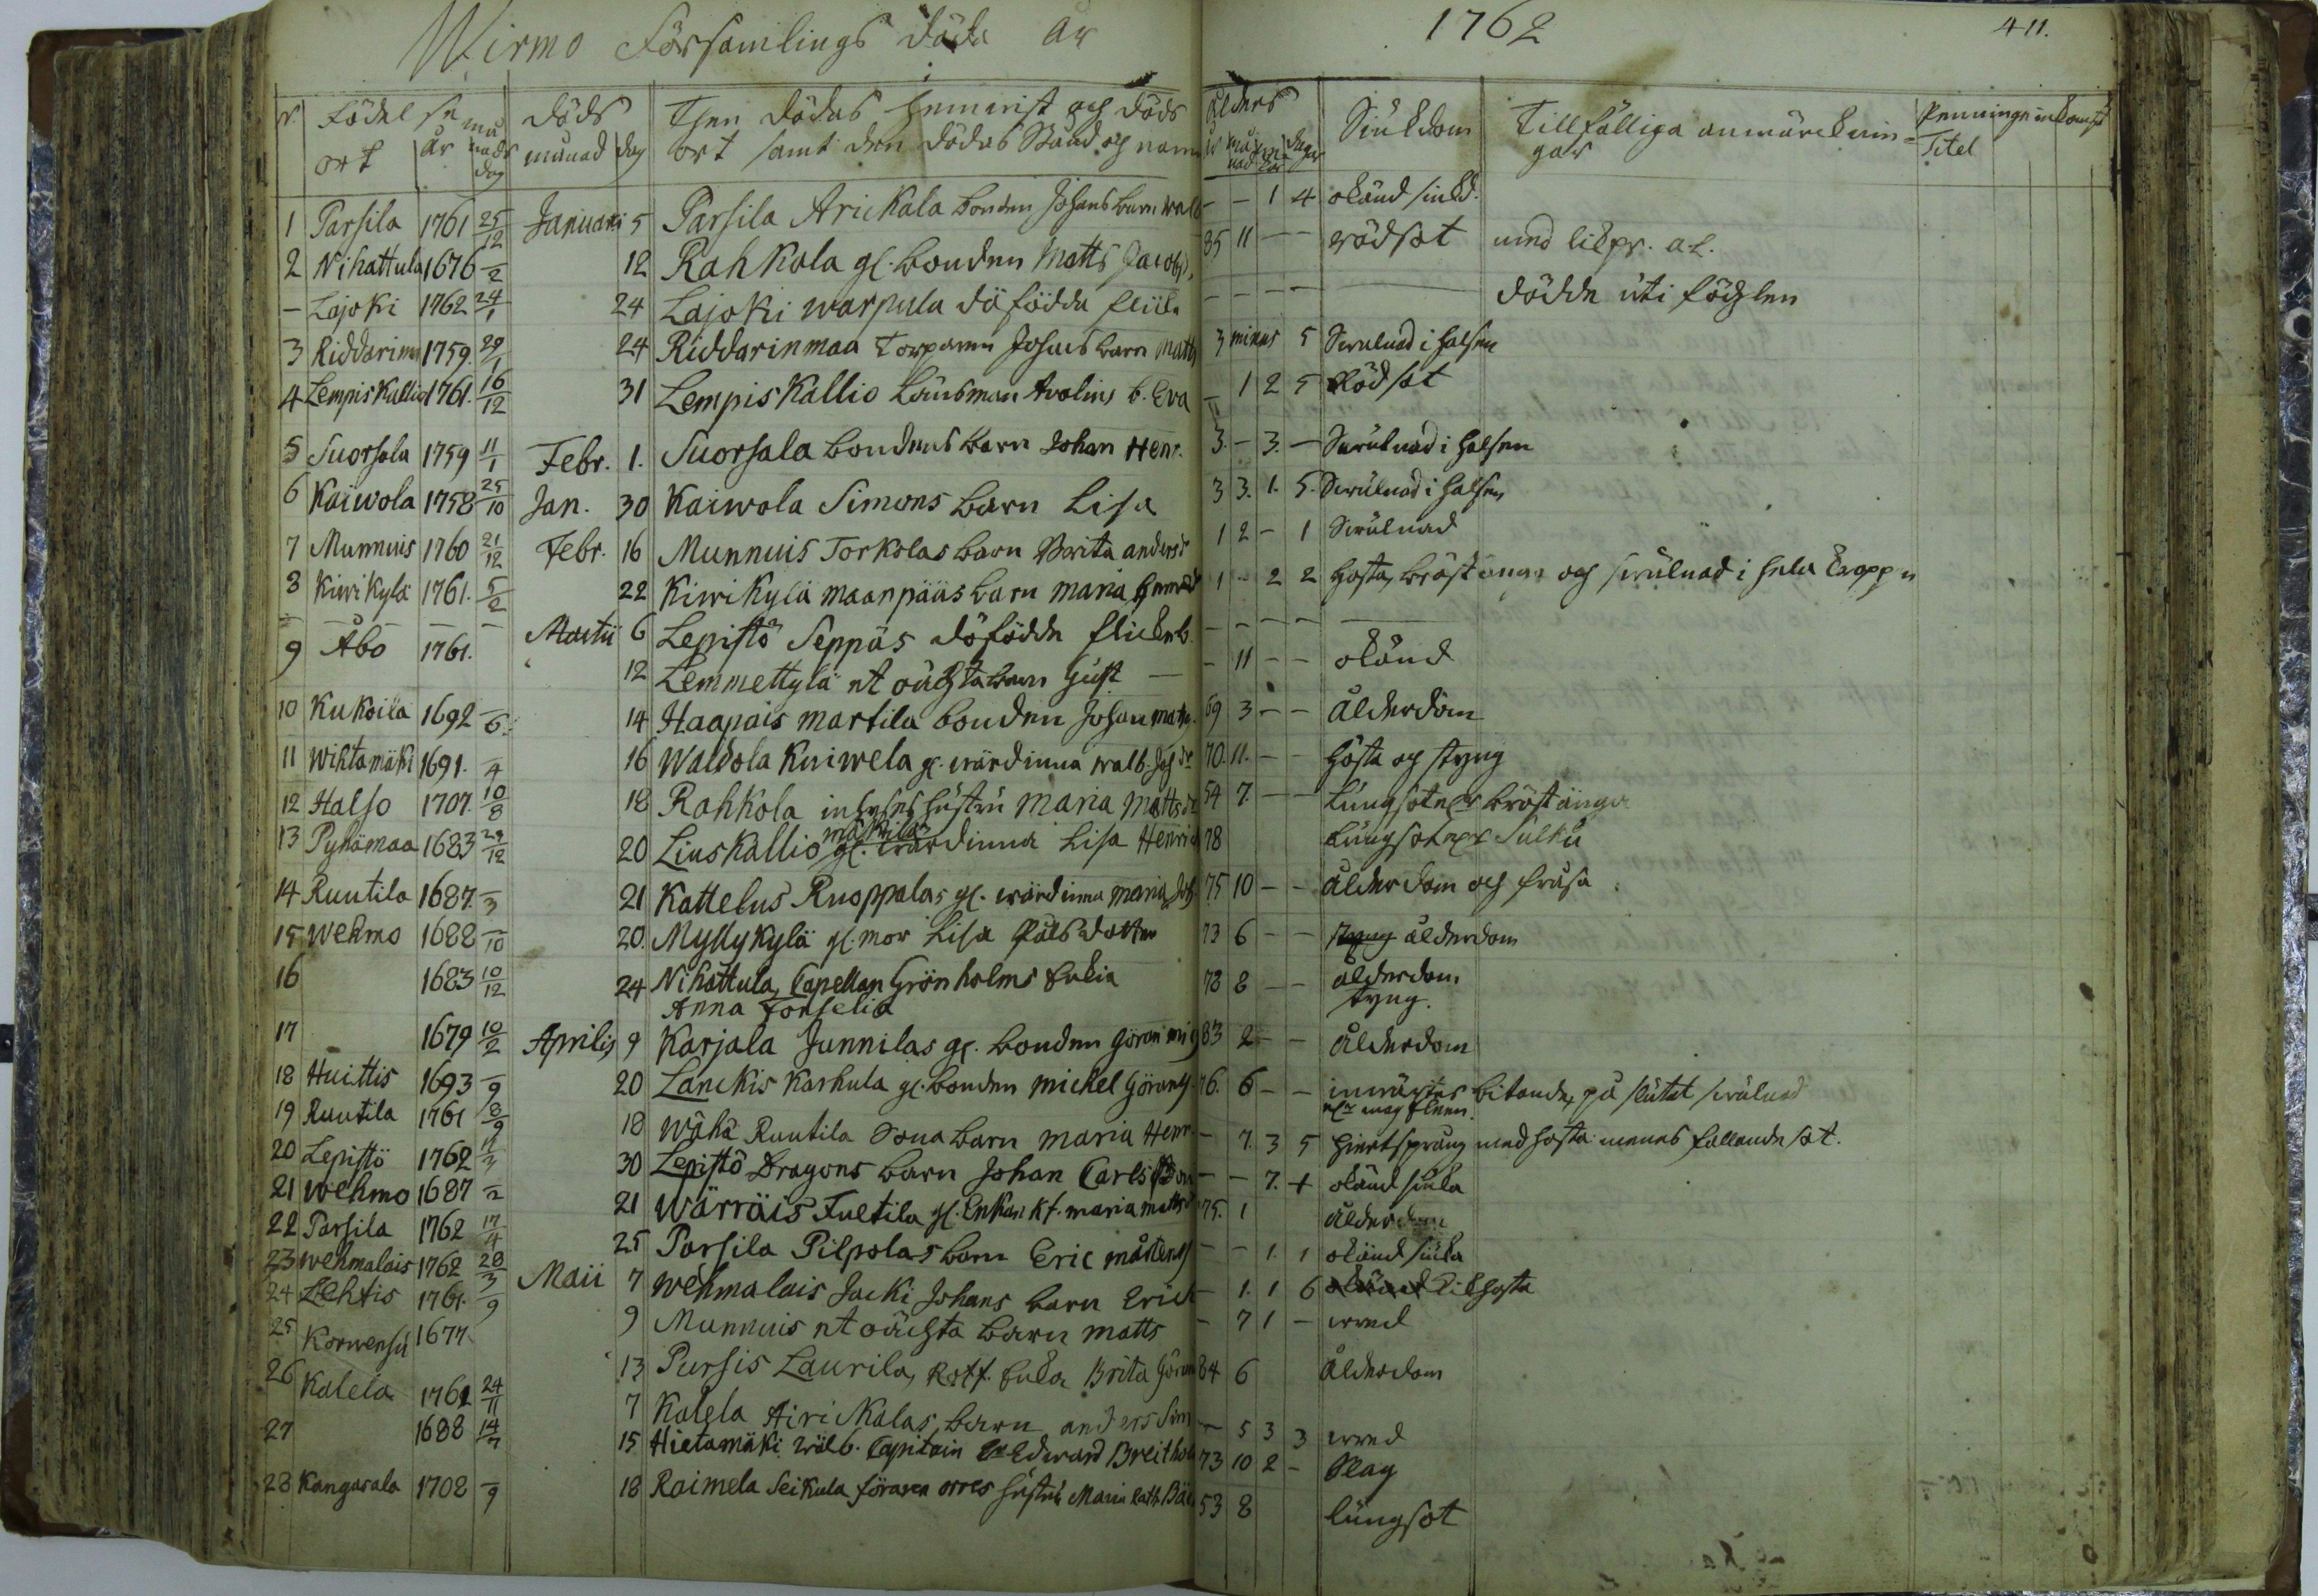 Wirmo Församlings döda år 1762 411.
Födelse ort år månads dag döds månad dag Then dödas hemvist och döds ort samt den dödas Stånd och namn Ålders år månad dagar Siukdom Tillfälliga anmärckningar Penninge inkomst Titel
1 Parsila 1761 25/12 Januari 5 Parsila Arickala bonden Johans barn Walb - - 1 4 okänd siukd.
2 Nihattula 1676 -/2 12 Rahkola gl. bonden Matts Jacobs. 85 11 - - rödsot
- Lajoki 1762 24/1 24 Lajoki warpula döfödda - - - - dödde uti födslen
3 Riddarinm 1759 29/1 24 Riddarinmaa Torparen Johans barn Matts 3 minus 5 Swulnad i halsen
4 Lempiskallio 1761. 16/12 31 Lempiskallio Länsman Avolins b. Eva - 1 2 5 Rödsot
5 Suorsala 1759 11/1 Febr. 1. Suorsala bondens barn Johan Henr. 3. - 3. - Swulnad i halsen
6 Kaiwola 1758 25/10 Jan. 30 Kaiwola Simons barn Lisa 3 3. 1. 5. Swulnad i halsen
7 Munnuis 1760 21/12 Febr. 16 Munnuis Torkolas barn Brita andersdr 1 2 - 1 Swulnad
8 Kiwikylä 1761. 5/2 22 Kiwikylä maanpääs barn maria 1 - 2 2 hosta, bröstånga och swulnad i hela kroppen
- - - - Martii 6 Lepistö Seppäs döfödda flickeb. - - - -
9 Åbo 1761. 12 Lemmettylä et oächta barn Gust - - 11 - - okänd
10 Kukoila 1692 -/6. 14 Haapais martila bonden Johan matts. 69 3 - - ålderdom
11 Wihtamäki 1691. -/4 16 Waldola Kuiwela gl. wärdinna walb. Johdr 70. 11. - - hosta og styng
12 Halso 1707. 10/8 18 Rahkola inhyses hustru Maria Mattsdr 54 7. - - Lungsot eller bröstånga
13 Pyhämaa 1683 29/12 20 Linskallio gl. wärdinna Lisa Henrics 78 Lungsot
14 Ruutila 1687. -/3 21 Kattelus Ruoppalas gl. wärdinna Maria Joh 75 10 - - ålderdom och frusa
15 Wehmo 1688 -/10 20. Myllykylä gl. mor Lisa Påls dotter 73 6 - - styng ålderdom
16 1683 10/12 24 Nihattula, Capellan Grönholms Enkia Anna Forselia 78 8 - - ålderdom styng.
17 1679 10/2 Aprilis 9 Karjala Junnilas gl. bonden Göran 83 2 - - ålderdom
18 Huittis 1693 -/9 20 Lanckis Karhula gl. bonden michel Görans. 76. 6 - - inwärtes bitande, på slutet swulnad
19 Ruutila 1761 8/9 18 Wähä Ruutila Sona barn maria Henr. - 7. 3 5 hiertsprång med hosta menas fallande sot.
20 Lepistö 1762 11/3 30 Lepistö Dragons barn Johan Carls son - - 7. + okänd siuka
21 Wehmo 1687 -/2 21 Wärräis Fuetila gl. Enkan maria matts 75. 1 ålderdom
22 Parsila 1762 17/4 25 Parsila Pilpolas barn Eric mårtens - - 1. 1 okänd siuka
23 wehmalais 1762 28/3 Maii 7 Wehmalais Jacki Johans barn Erich - 1. 1 6 okänd kikhosta
24 Lehtis 1761. -/9 9 Munnuis et oächta barn matts - 7 1 - wred
25 Korwensu 1677. 13 Pursis Laurila, Rotf. Enka Brita Göran 84 6 ålderdom
26 Kalela 1761 24/11 7 Kalela Airickalas barn anders Sim - 5 3 3 wred
27 1688 14/7 15 Hietamäki wälb. Capitain Edward Breitholt 73 10 2 - Slag
28 Kangasala 1708 -/9 18 Raimela Seikula föraren orres hustru Maria Bäck 53 8 lungsot